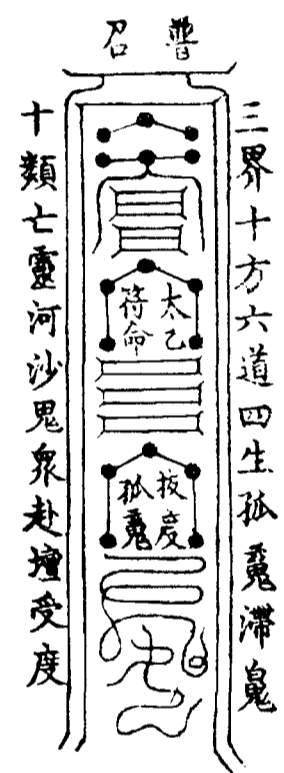 普召
三界十方六道四生孤魂滯魄
太乙符命
拔度孤魂
十類亡靈河沙鬼眾赴壇受度